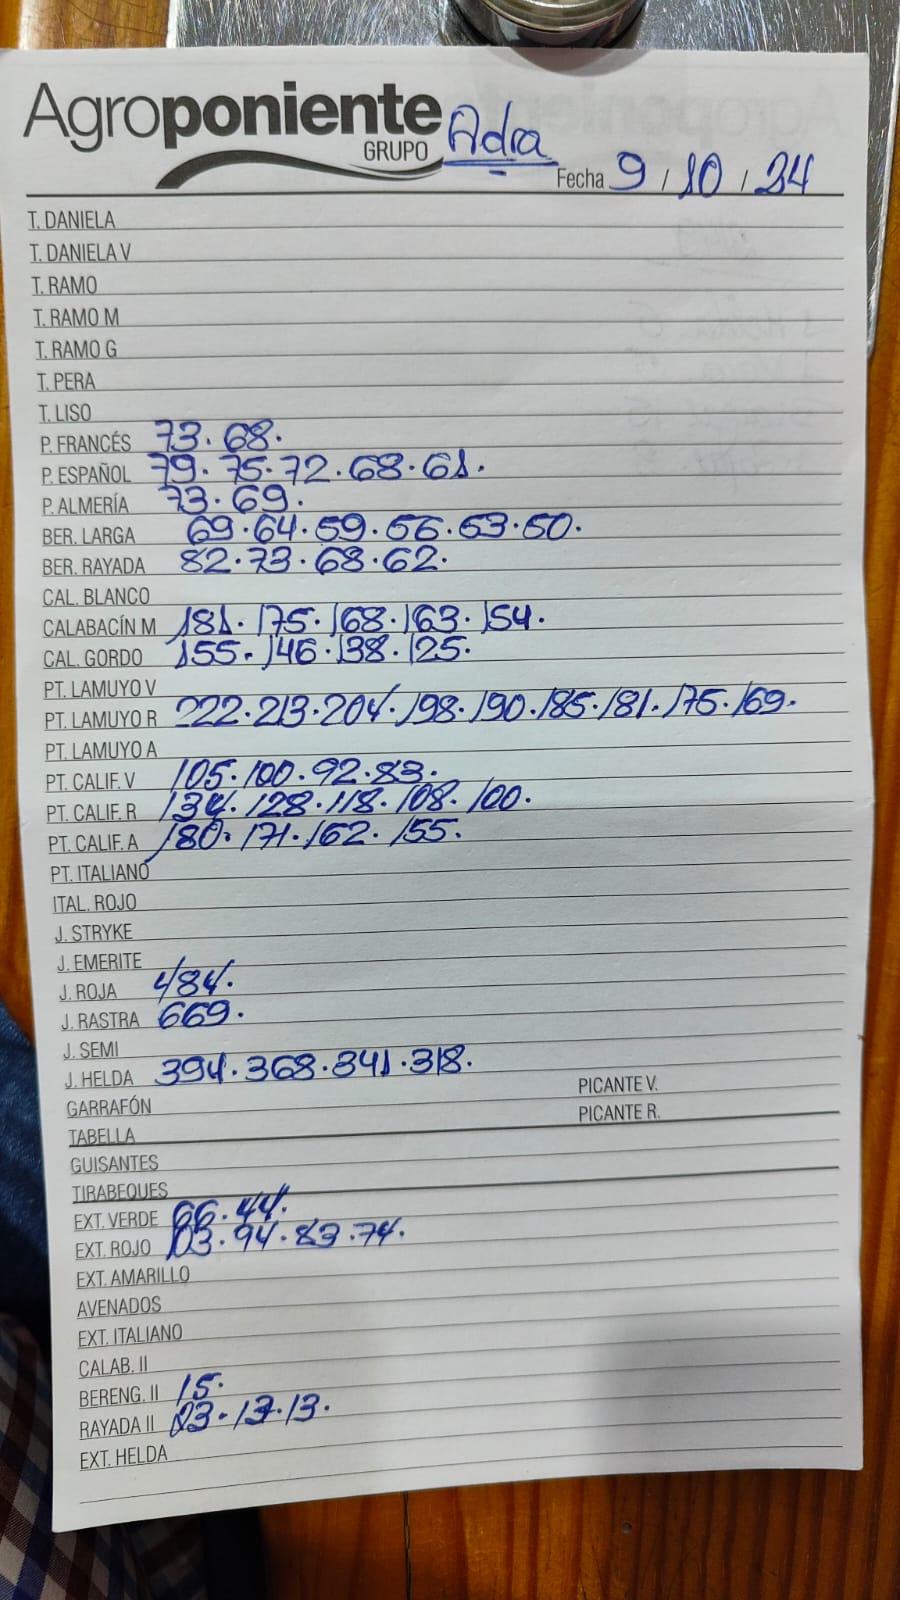 Agroponiente
GRUPO
Adra
Fecha 9 / 10 / 24
T. DANIELA
T. DANIELA V
T. RAMO
T. RAMO M
T. RAMO G
T. PERA
T. LISO
P. FRANCÉS 73. 68.
P. ESPAÑOL 79. 75. 72. 68. 61.
P. ALMERÍA 73. 69.
BER. LARGA 69. 64. 59. 56. 53. 50.
BER. RAYADA 82. 73. 68. 62.
CAL. BLANCO
CALABACÍN M 181. 175. 168. 163. 154.
CAL. GORDO 155. 146. 138. 125.
PT. LAMUYO V
PT. LAMUYO R 222. 213. 204. 198. 190. 185. 181. 175. 169.
PT. LAMUYO A
PT. CALIF. V 105. 100. 92. 83.
PT. CALIF. R 134. 128. 118. 108. 100.
PT. CALIF. A 180. 171. 162. 155.
PT. ITALIANO
ITAL. ROJO
J. STRYKE
J. EMERITE
J. ROJA 484.
J. RASTRA 669.
J. SEMI
J. HELDA 394. 368. 341. 318.
PICANTE V.
GARRAFÓN
PICANTE R.
TABELLA
GUISANTES
TIRABEQUES
EXT. VERDE 66. 44.
EXT. ROJO 103. 94. 83. 74.
EXT. AMARILLO
AVENADOS
EXT. ITALIANO
CALAB. II
BERENG. II 15.
RAYADA II 23. 17. 13.
EXT. HELDA